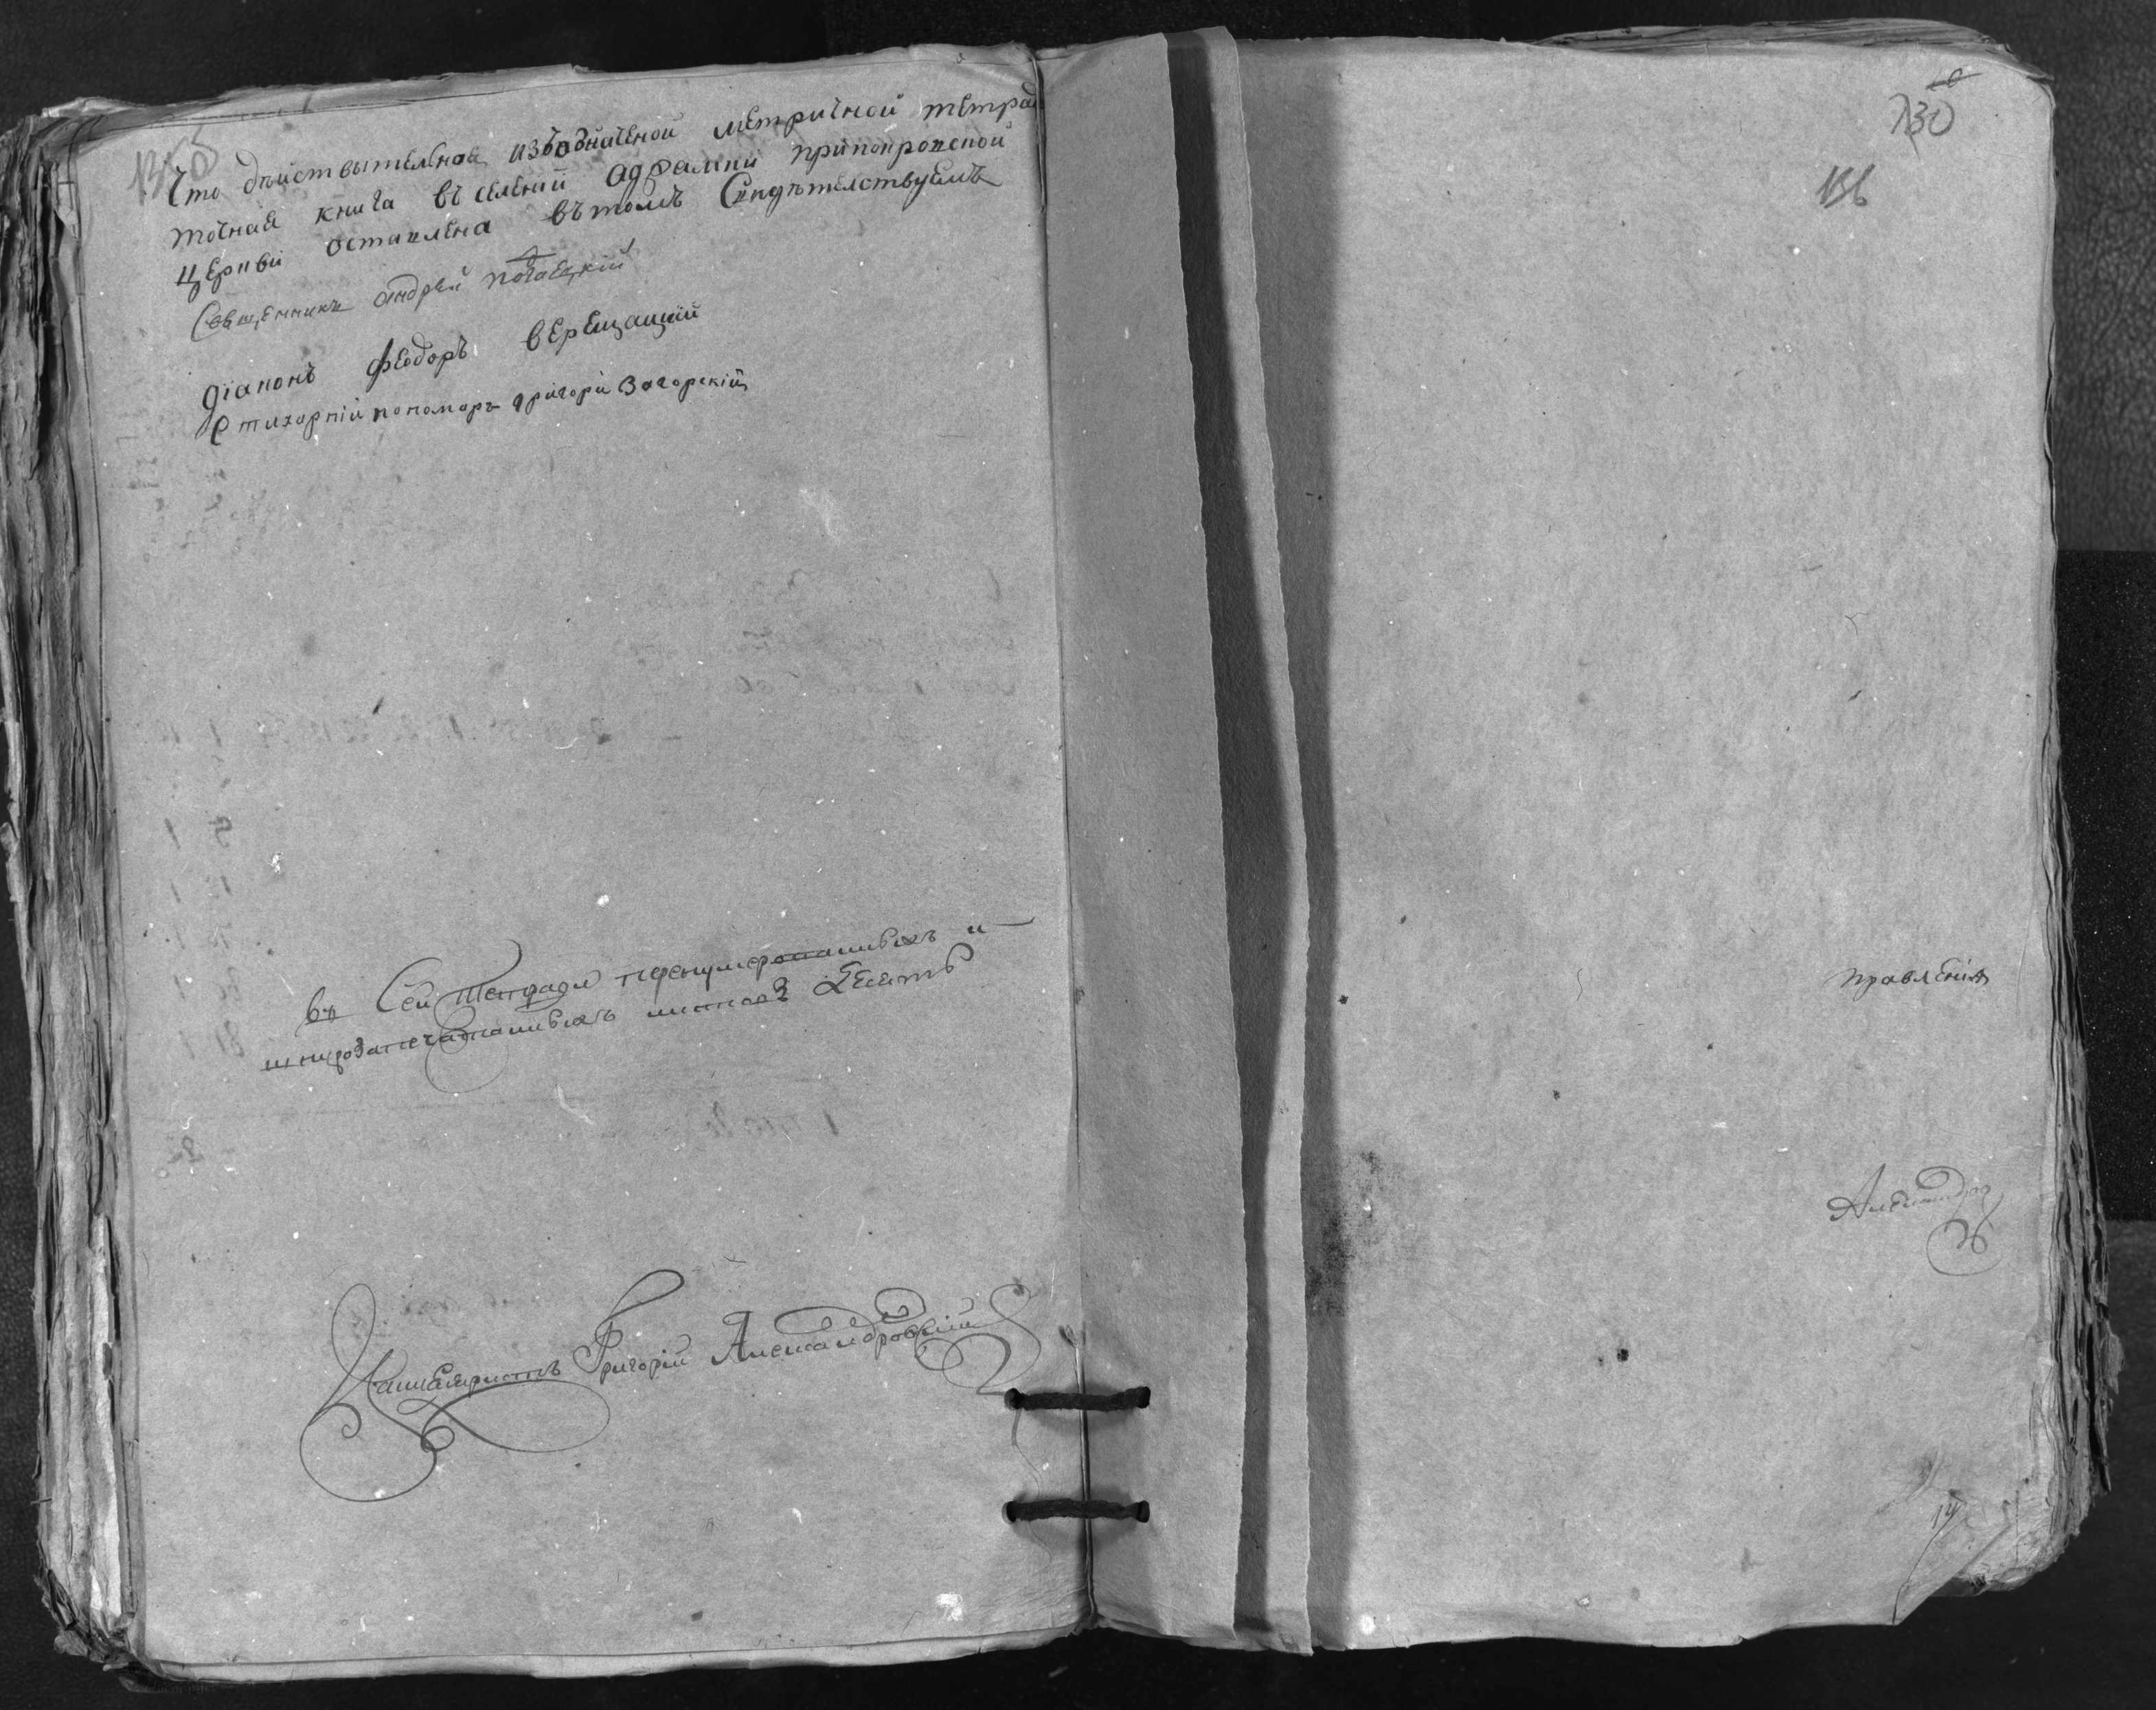 Что дѣйствытелная изъозначеной метричной тетрад
точная книга въ селении Адрамки припокровской
церквы оставлена въ томъ Свидѣтелствуемъ
Священникъ Андрей Почаецкий
Діаконъ Феодоръ Верещацкий
Стихарній пономаръ Григори Загорскій
въ Сей Тетради перенумерованныхъ и
шнурозапечатанныхъ листовъ Десеть
Канцеляристъ Григорій Александровскій
130
156
правленія
Александро
14